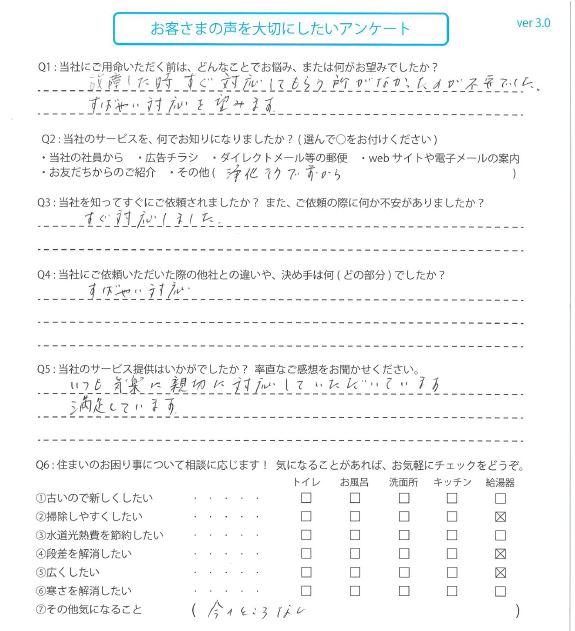 お客さまの声を大切にしたいアンケート
ver 3.0
Q1：当社にご用命いただく前は、どんなことでお悩み、または何がお望みでしたか？
故障した時すぐ対応してもらう所がなかったのが不安でした。
すばやい対応を望みます
Q2：当社のサービスを、何でお知りになりましたか？(選んで○をお付けください)
・当社の社員から ・広告チラシ ・ダイレクトメール等の郵便 ・webサイトや電子メールの案内
・お友だちからのご紹介 ・その他( 浄化ラクで前から )
Q3：当社を知ってすぐにご依頼されましたか？ また、ご依頼の際に何か不安がありましたか？
すぐ対応しました.
Q4：当社にご依頼いただいた際の他社との違いや、決め手は何(どの部分)でしたか？
すばやい対応
Q5：当社のサービス提供はいかがでしたか？ 率直なご感想をお聞かせください。
いつも気楽に親切に対応していただいています
満足しています
Q6：住まいのお困り事について相談に応じます！ 気になることがあれば、お気軽にチェックをどうぞ。
トイレ お風呂 洗面所 キッチン 給湯器
①古いので新しくしたい ・・・・・ □ □ □ □ □
②掃除しやすくしたい ・・・・・ □ □ □ □ ☒
③水道光熱費を節約したい ・・・・・ □ □ □ □ □
④段差を解消したい ・・・・・ □ □ □ □ ☒
⑤広くしたい ・・・・・ □ □ □ □ ☒
⑥寒さを解消したい ・・・・・ □ □ □ □ □
⑦その他気になること ( 今のところなし )